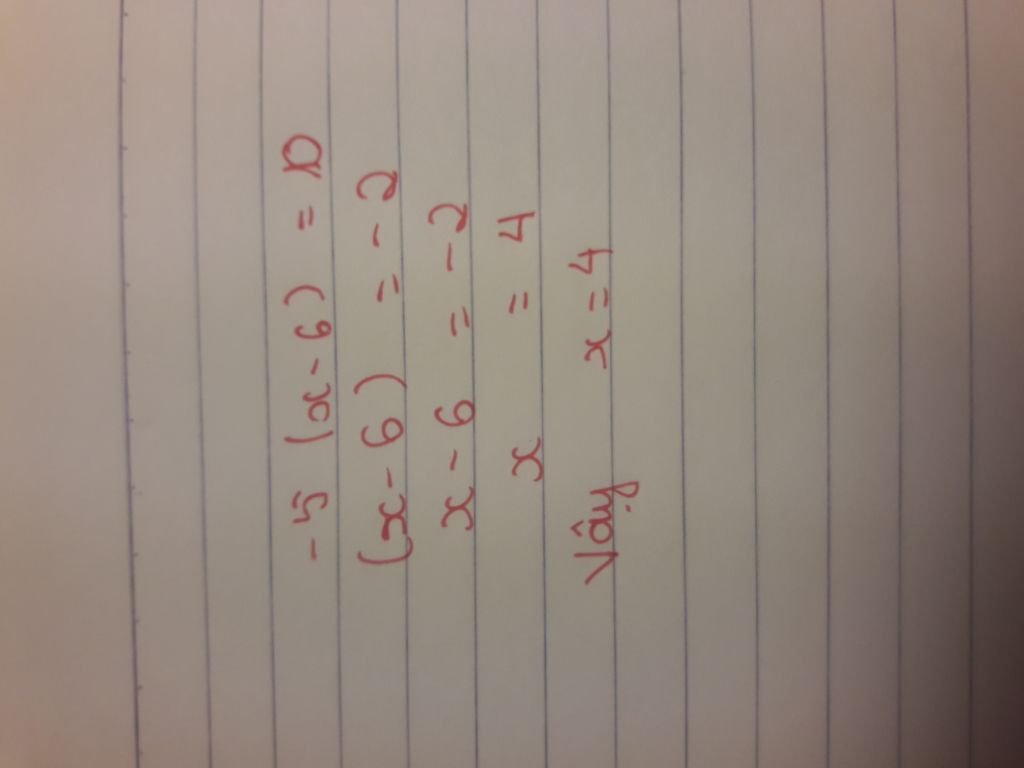 -5 (x - 6) = 10
(x - 6) = -2
x - 6 = -2
x = 4
Vậy x = 4